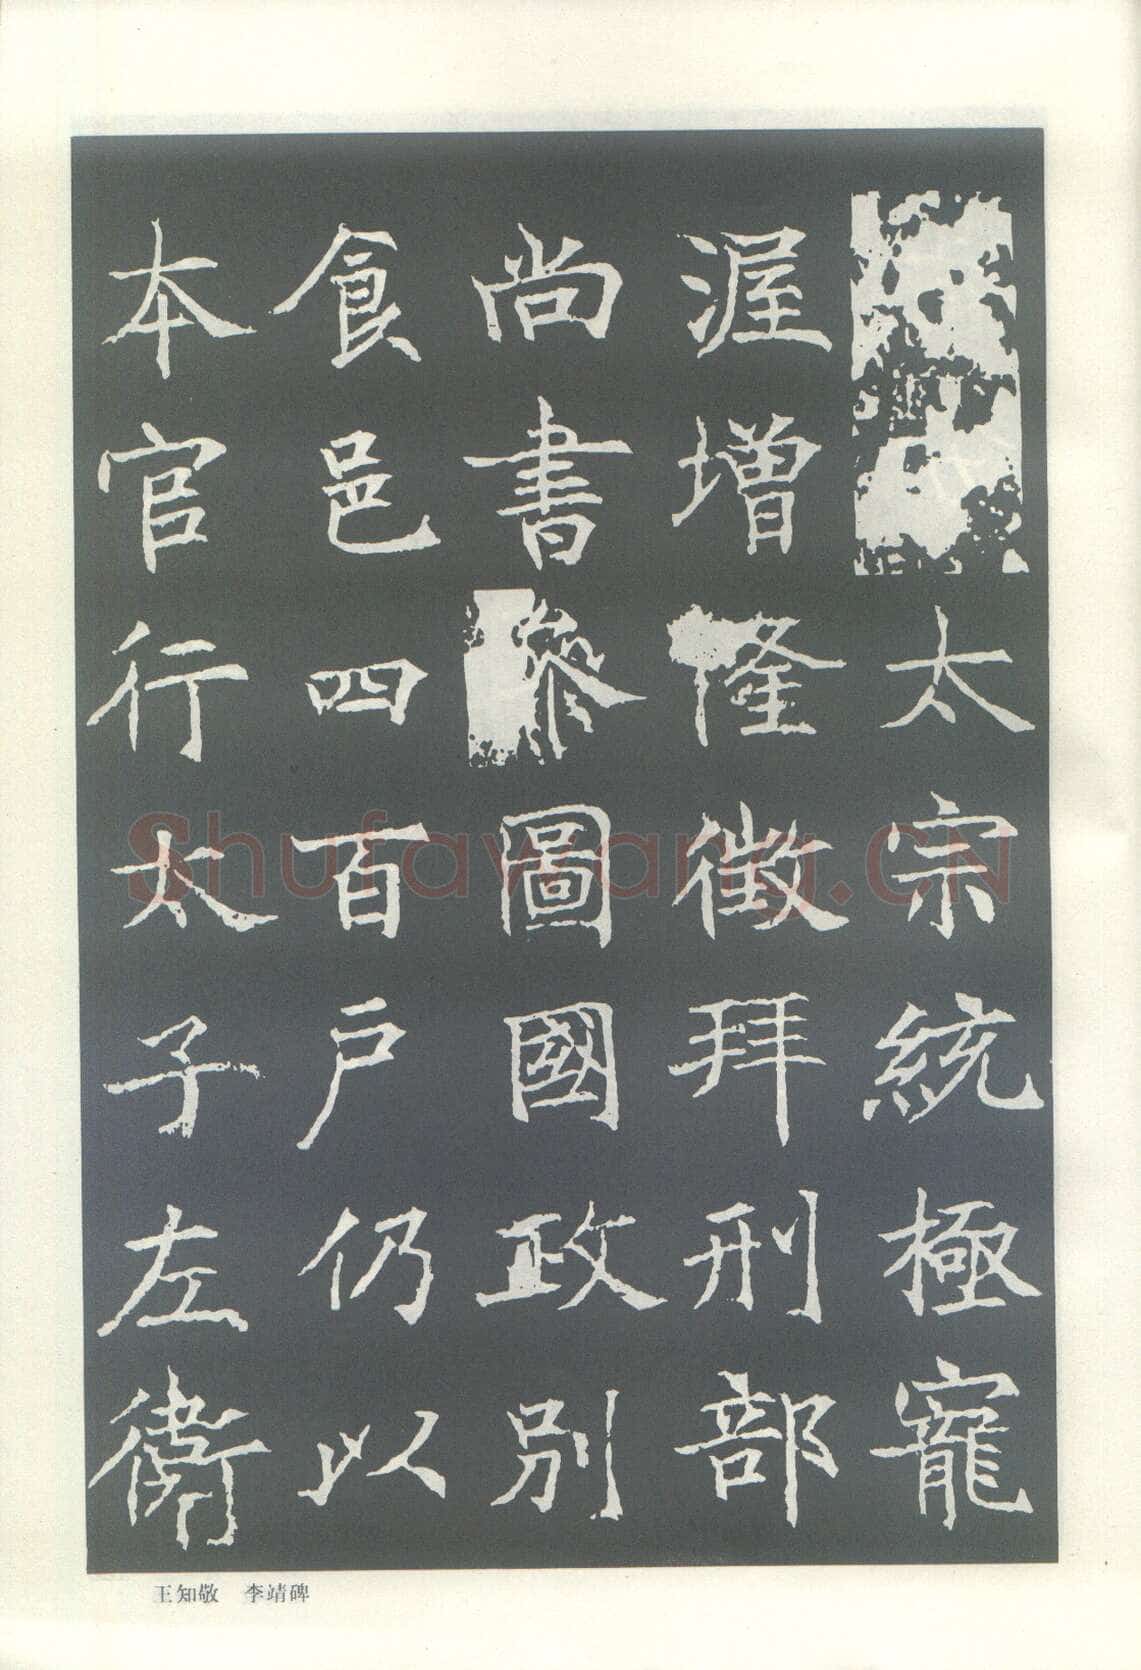 太宗統極寵
渥增隆徵拜刑部
尚書參圖國政別
食邑四百户仍以
本官行太子左衛
王知敬 李靖碑
Shufawang.CN